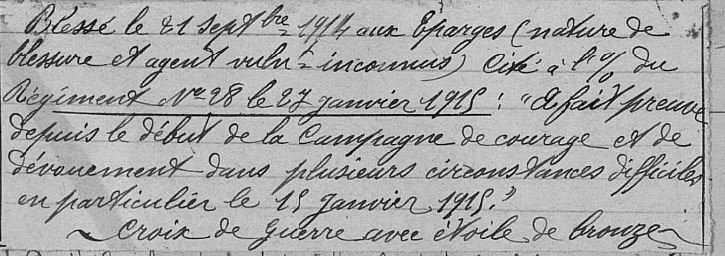 Blessé le 21 Septbre 1914 aux Eparges (nature de
blessure et agent vulnt inconnus) Cité à l'O/o du
Régiment No 28 le 27 janvier 1915 : "A fait preuve
depuis le début de la Campagne de courage et de
dévouement dans plusieurs circonstances difficiles
en particulier le 15 Janvier 1915."
~ Croix de Guerre avec étoile de bronze ~